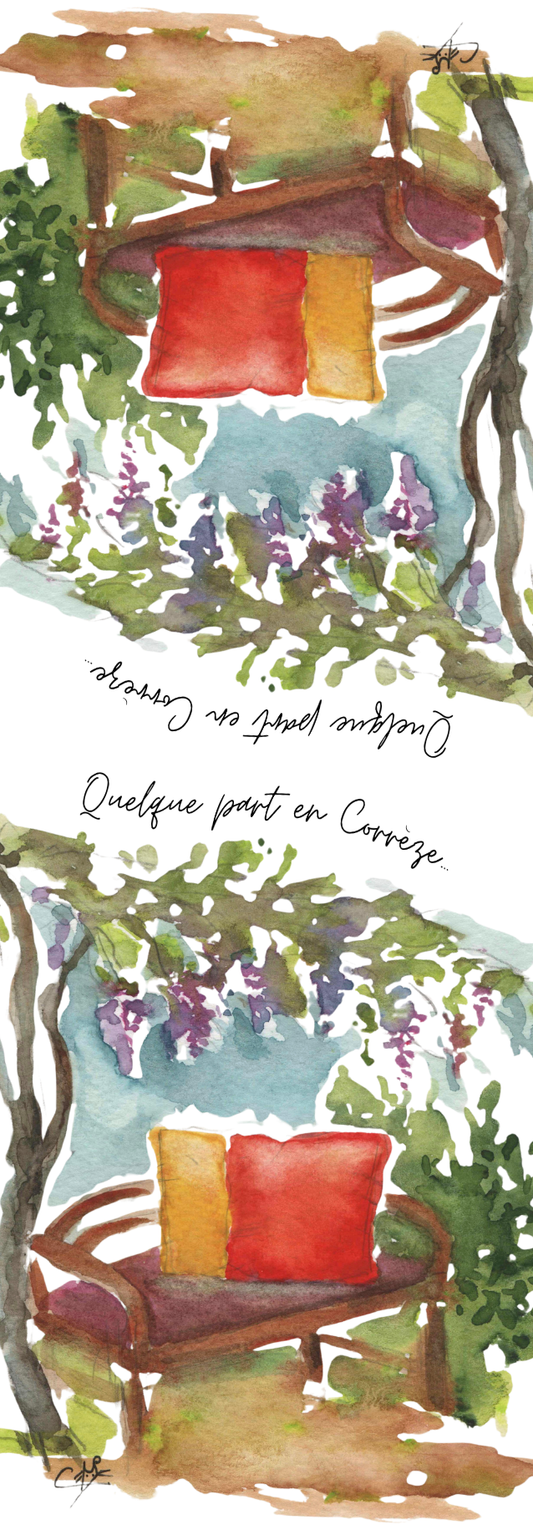 Quelque part en Corrèze...
Quelque part en Corrèze...